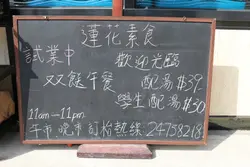 蓮花素食
試業中 歡迎光臨
双餸午餐 配湯$39.
學生配湯$30
11am-11pm
午市,晚市 訂枱熱線 24758218